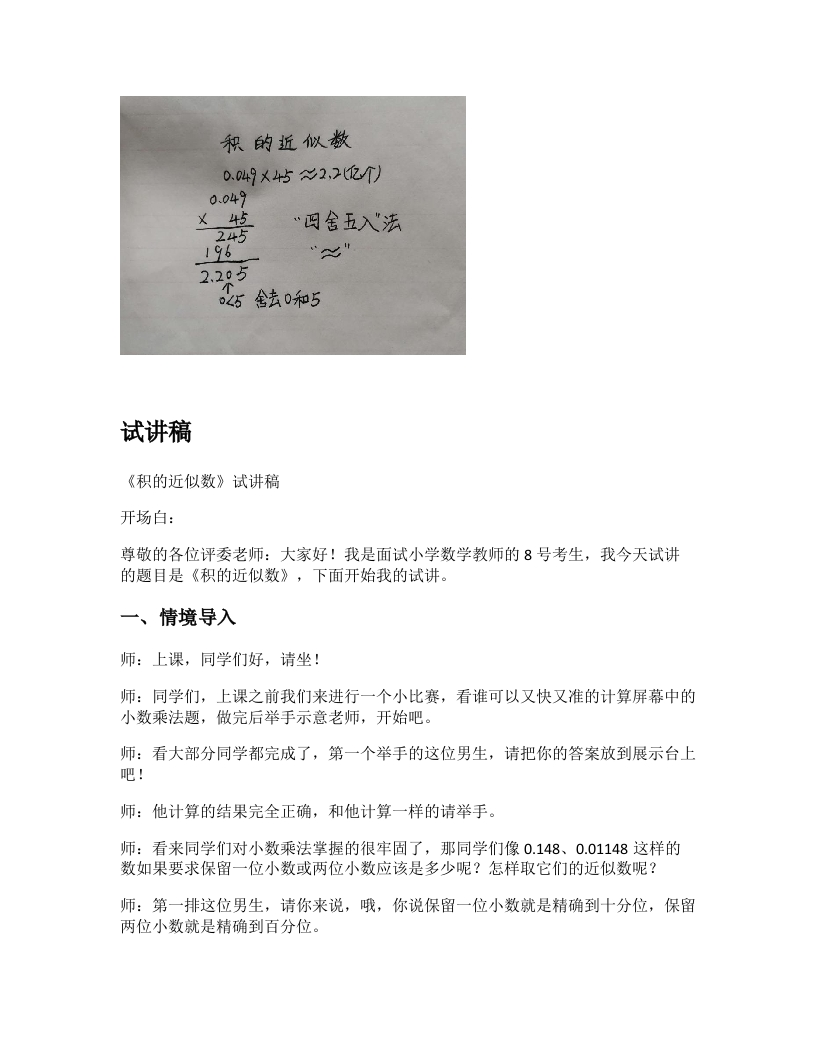 积的近似数
0.049×45≈2.2(亿个)
0.049
× 45
“四舍五入”法
245
“≈”
196
2.205
↑
0<5 舍去0和5
试讲稿
《积的近似数》试讲稿
开场白：
尊敬的各位评委老师：大家好！我是面试小学数学教师的 8 号考生，我今天试讲
的题目是《积的近似数》，下面开始我的试讲。
一、情境导入
师：上课，同学们好，请坐！
师：同学们，上课之前我们来进行一个小比赛，看谁可以又快又准的计算屏幕中的
小数乘法题，做完后举手示意老师，开始吧。
师：看大部分同学都完成了，第一个举手的这位男生，请把你的答案放到展示台上
吧！
师：他计算的结果完全正确，和他计算一样的请举手。
师：看来同学们对小数乘法掌握的很牢固了，那同学们像 0.148、0.01148 这样的
数如果要求保留一位小数或两位小数应该是多少呢？怎样取它们的近似数呢？
师：第一排这位男生，请你来说，哦，你说保留一位小数就是精确到十分位，保留
两位小数就是精确到百分位。